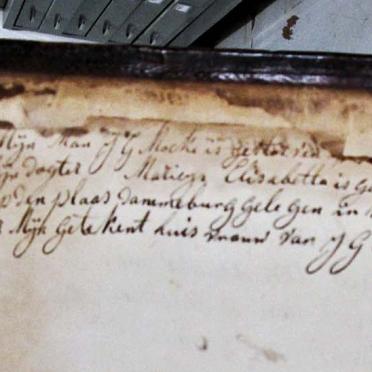 Mijn Man J G Mocke is gestorven
dogter Elisabetta is
den plaas dammeburg gelegen in
Mijn getekent huis vrouw van J G